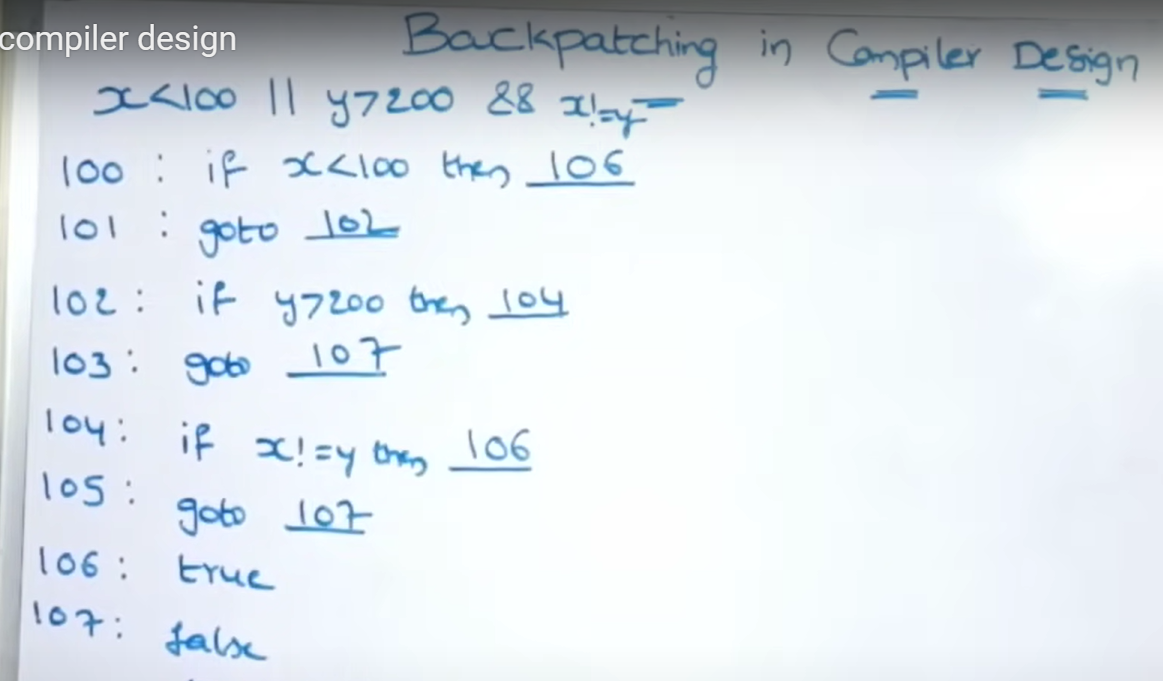 compiler design
Backpatching in Compiler Design
x<100 || y>200 && x!=y
100 : if x<100 then 106
101 : goto 102
102 : if y>200 then 104
103 : goto 107
104 : if x!=y then 106
105 : goto 107
106 : true
107 : false